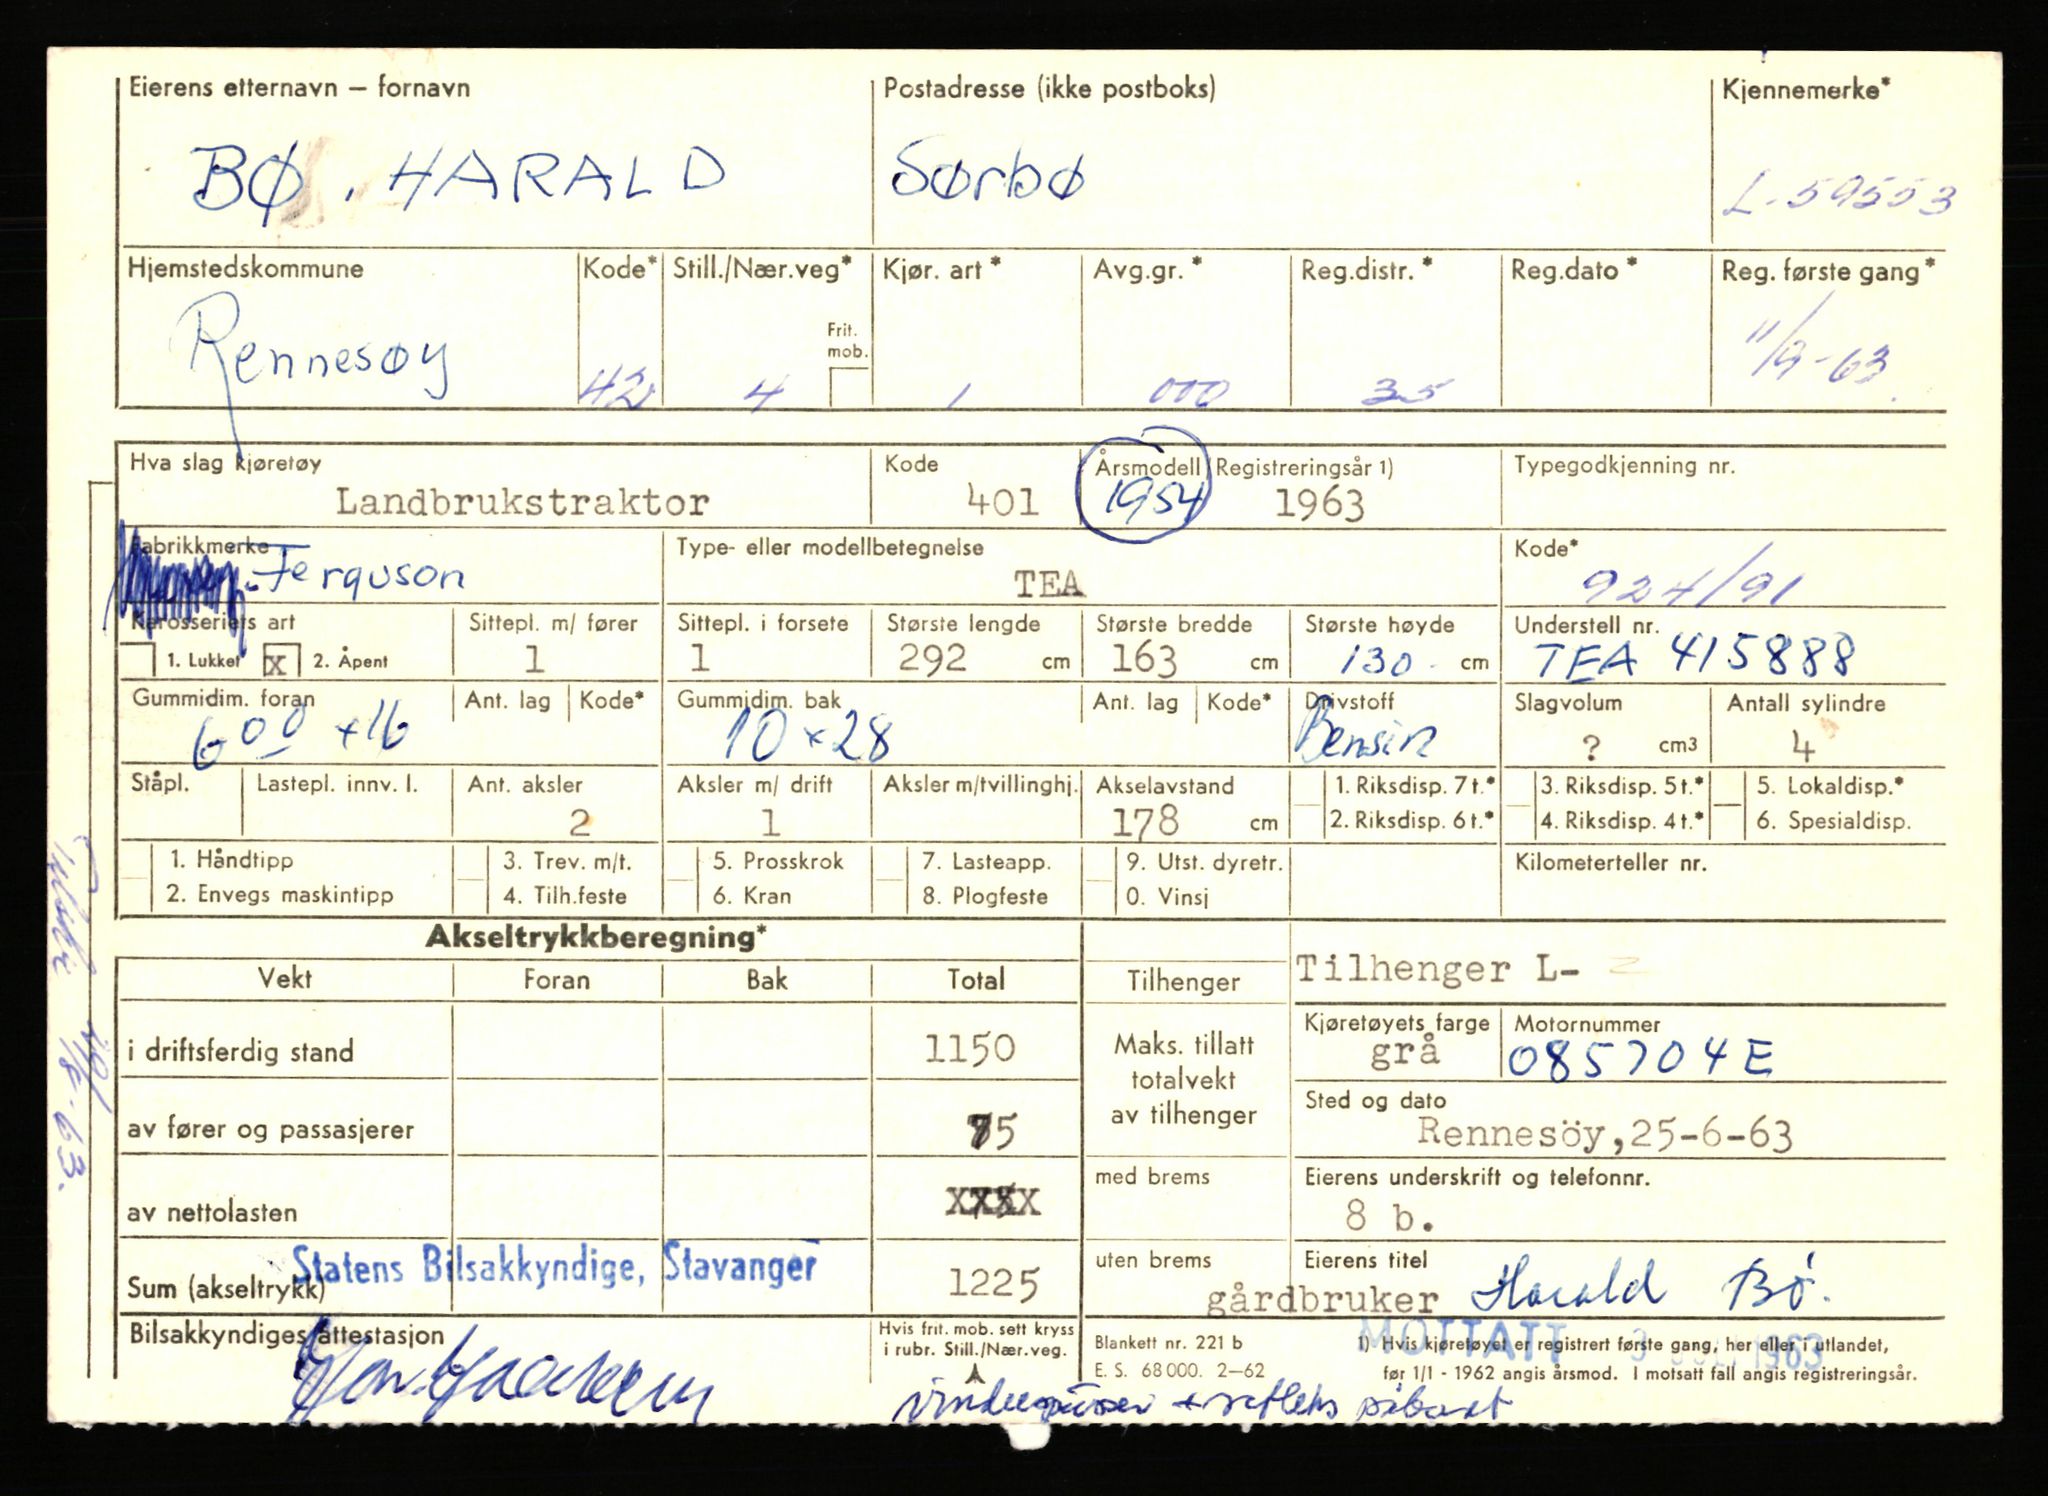 Eierens etternavn — fornavn Postadresse (ikke postboks) Kjennemerke*
BØ, HARALD Sørbø L-59553
Hjemstedskommune Kode* Still./Nær.veg* Kjør. art * Avg.gr. * Reg.distr. * Reg.dato * Reg. første gang*
Frit. mob.
Rennesøy 42 4 1 000 35 11/9-63
Hva slag kjøretøy Kode Årsmodell/Registreringsår 1) Typegodkjenning nr.
Landbrukstraktor 401 1954 1963
Fabrikkmerke Type- eller modellbetegnelse Kode*
Ferguson TEA 924/91
Karosseriets art Sittepl. m/ fører Sittepl. i forsete Største lengde Største bredde Største høyde Understell nr.
1. Lukket x 2. Åpent 1 1 292 cm 163 cm 130 cm TEA 415888
Gummidim. foran Ant. lag Kode* Gummidim. bak Ant. lag Kode* Drivstoff Slagvolum Antall sylindre
6-00 x16 10x28 Bensin ? cm3 4
Ståpl. Lastepl. innv. l. Ant. aksler Aksler m/ drift Aksler m/tvillinghj. Akselavstand 1. Riksdisp. 7 t.* 3. Riksdisp. 5 t.* 5. Lokaldisp.*
2 1 178 cm 2. Riksdisp. 6 t.* 4. Riksdisp. 4 t.* 6. Spesialdisp.
1. Håndtipp 3. Trev. m/t. 5. Prosskrok 7. Lasteapp. 9. Utst. dyretr. Kilometerteller nr.
2. Envegs maskintipp 4. Tilh.feste 6. Kran 8. Plogfeste 0. Vinsj
Akseltrykkberegning*
Vekt Foran Bak Total Tilhenger Tilhenger L-
i driftsferdig stand 1150 Maks. tillatt totalvekt av tilhenger
Kjøretøyets farge Motornummer
grå 085704E
av fører og passasjerer 75
Sted og dato
Rennesöy, 25-6-63
av nettolasten XXXX med brems Eierens underskrift og telefonnr.
8 b.
Statens Bilsakkyndige, Stavanger
Sum (akseltrykk) 1225 uten brems Eierens titel
gårdbruker Harald Bø.
Bilsakkyndiges attestasjon Hvis frit. mob. sett kryss i rubr. Still./Nær.veg.
Blankett nr. 221 b
E. S. 68 000. 2-62
MOTTATT 3 1963
1) Hvis kjøretøyet er registrert første gang, her eller i utlandet,
før 1/1 - 1962 angis årsmod. I motsatt fall angis registreringsår.
vinduspusser + refleks påbudt
29/8-63.